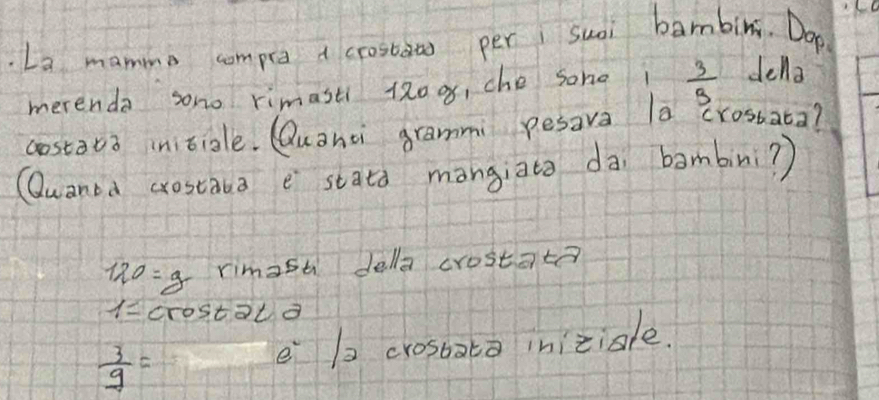 .La mamma compra 1 crostata per i suoi bambini. Dop.
merenda sono rimasti 120 g, che sono i 3/9 della
costata iniziale. (Quanti grammi pesava la crostata?
(Quanta crostata e' stata mangiata dai bambini?)
120 = g rimasti della crostata
1 = crostata
3/9 = e' la crostata iniziale.